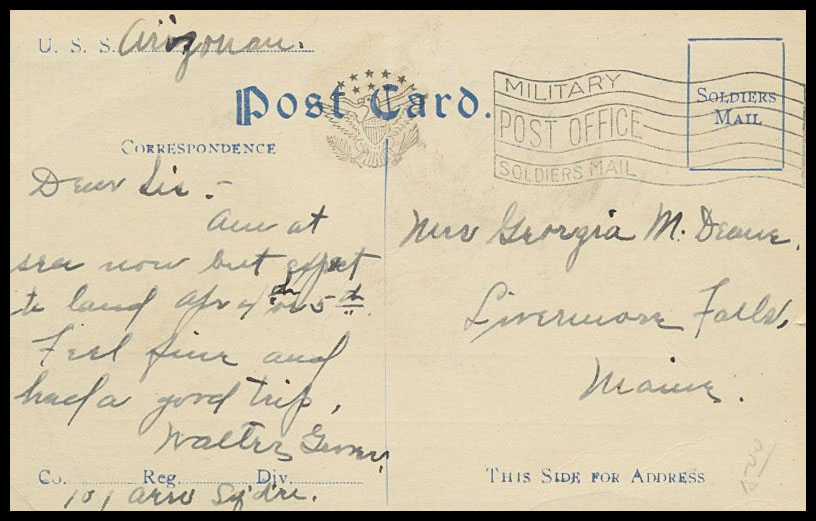 U. S. S. Arizonan.
Post Card.
MILITARY
POST OFFICE
SOLDIERS MAIL
SOLDIERS
MAIL
CORRESPONDENCE
Dear Sis.-
Am at
sea now but expect
to land Apr 4th or 5th.
Feel fine and
had a good trip,
Walter
Co. Reg. Div.
101 aero Sqdrn.
Mrs Georgia M. Deane,
Livermore Falls,
Maine.
THIS SIDE FOR ADDRESS